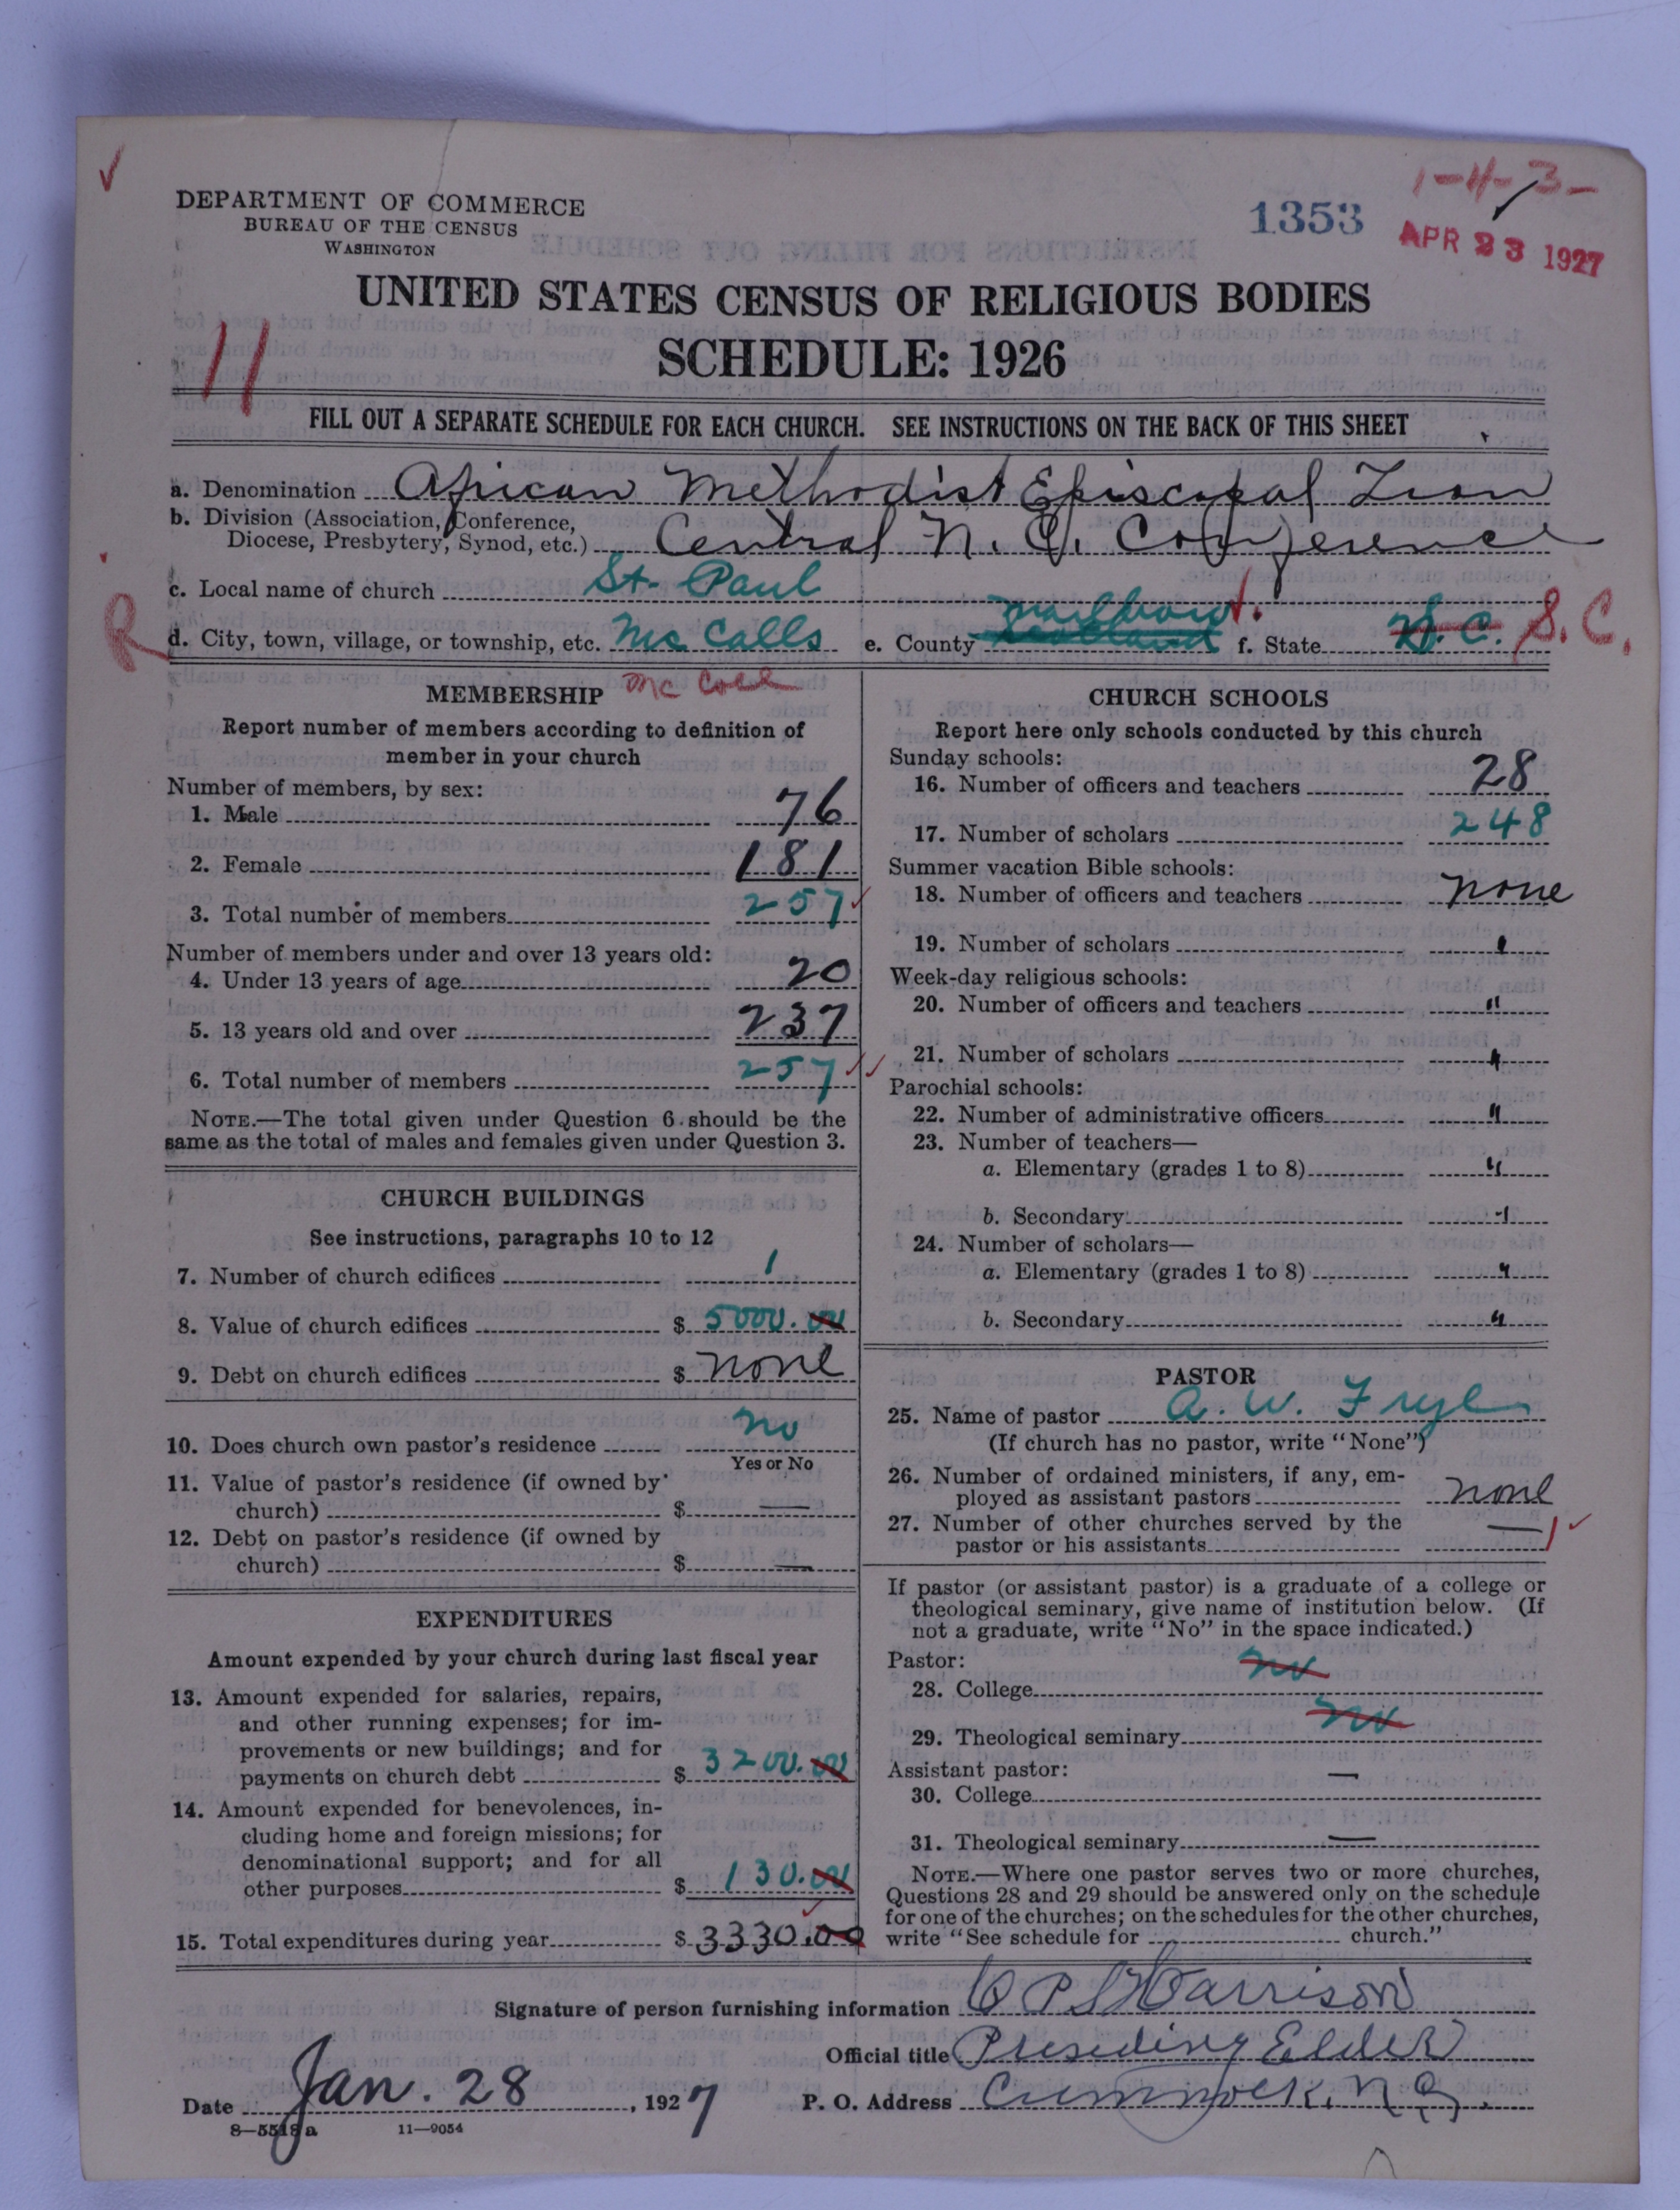 1-4-3-
1353
APR 23 1927
DEPARTMENT OF COMMERCE
BUREAU OF THE CENSUS
WASHINGTON
UNITED STATES CENSUS OF RELIGIOUS BODIES
SCHEDULE: 1926
11
FILL OUT A SEPARATE SCHEDULE FOR EACH CHURCH. SEE INSTRUCTIONS ON THE BACK OF THIS SHEET
a. Denomination African Methodist Episcopal Zion
b. Division (Association, Conference,
Diocese, Presbytery, Synod, etc.) Central N. C. Conference
c. Local name of church St. Paul
R d. City, town, village, or township, etc. Mc Calls e. County Marlboro f. State N. C. S. C.
Mc Coll
MEMBERSHIP
Report number of members according to definition of
member in your church
Number of members, by sex:
1. Male 76
2. Female 181
3. Total number of members 257
Number of members under and over 13 years old:
4. Under 13 years of age 20
5. 13 years old and over 237
6. Total number of members 257
NOTE.—The total given under Question 6 should be the
same as the total of males and females given under Question 3.
CHURCH BUILDINGS
See instructions, paragraphs 10 to 12
7. Number of church edifices 1
8. Value of church edifices $ 5000.00
9. Debt on church edifices $ none
10. Does church own pastor's residence no
Yes or No
11. Value of pastor's residence (if owned by
church) $ —
12. Debt on pastor's residence (if owned by
church) $ —
EXPENDITURES
Amount expended by your church during last fiscal year
13. Amount expended for salaries, repairs,
and other running expenses; for im-
provements or new buildings; and for
payments on church debt $ 3200.00
14. Amount expended for benevolences, in-
cluding home and foreign missions; for
denominational support; and for all
other purposes $ 130.00
15. Total expenditures during year $ 3330.00
CHURCH SCHOOLS
Report here only schools conducted by this church
Sunday schools:
16. Number of officers and teachers 28
17. Number of scholars 248
Summer vacation Bible schools:
18. Number of officers and teachers none
19. Number of scholars "
Week-day religious schools:
20. Number of officers and teachers "
21. Number of scholars "
Parochial schools:
22. Number of administrative officers "
23. Number of teachers—
a. Elementary (grades 1 to 8) "
b. Secondary "
24. Number of scholars—
a. Elementary (grades 1 to 8) "
b. Secondary "
PASTOR
25. Name of pastor A. W. Frye
(If church has no pastor, write "None")
26. Number of ordained ministers, if any, em-
ployed as assistant pastors none
27. Number of other churches served by the
pastor or his assistants — 1
If pastor (or assistant pastor) is a graduate of a college or
theological seminary, give name of institution below. (If
not a graduate, write "No" in the space indicated.)
Pastor:
28. College no
29. Theological seminary no
Assistant pastor:
30. College —
31. Theological seminary —
NOTE.—Where one pastor serves two or more churches,
Questions 28 and 29 should be answered only on the schedule
for one of the churches; on the schedules for the other churches,
write "See schedule for church."
Signature of person furnishing information Harrison
Official title Presiding Elder
Date Jan. 28, 1927 P. O. Address Cumnock, N. C.
8—5518a 11—9054